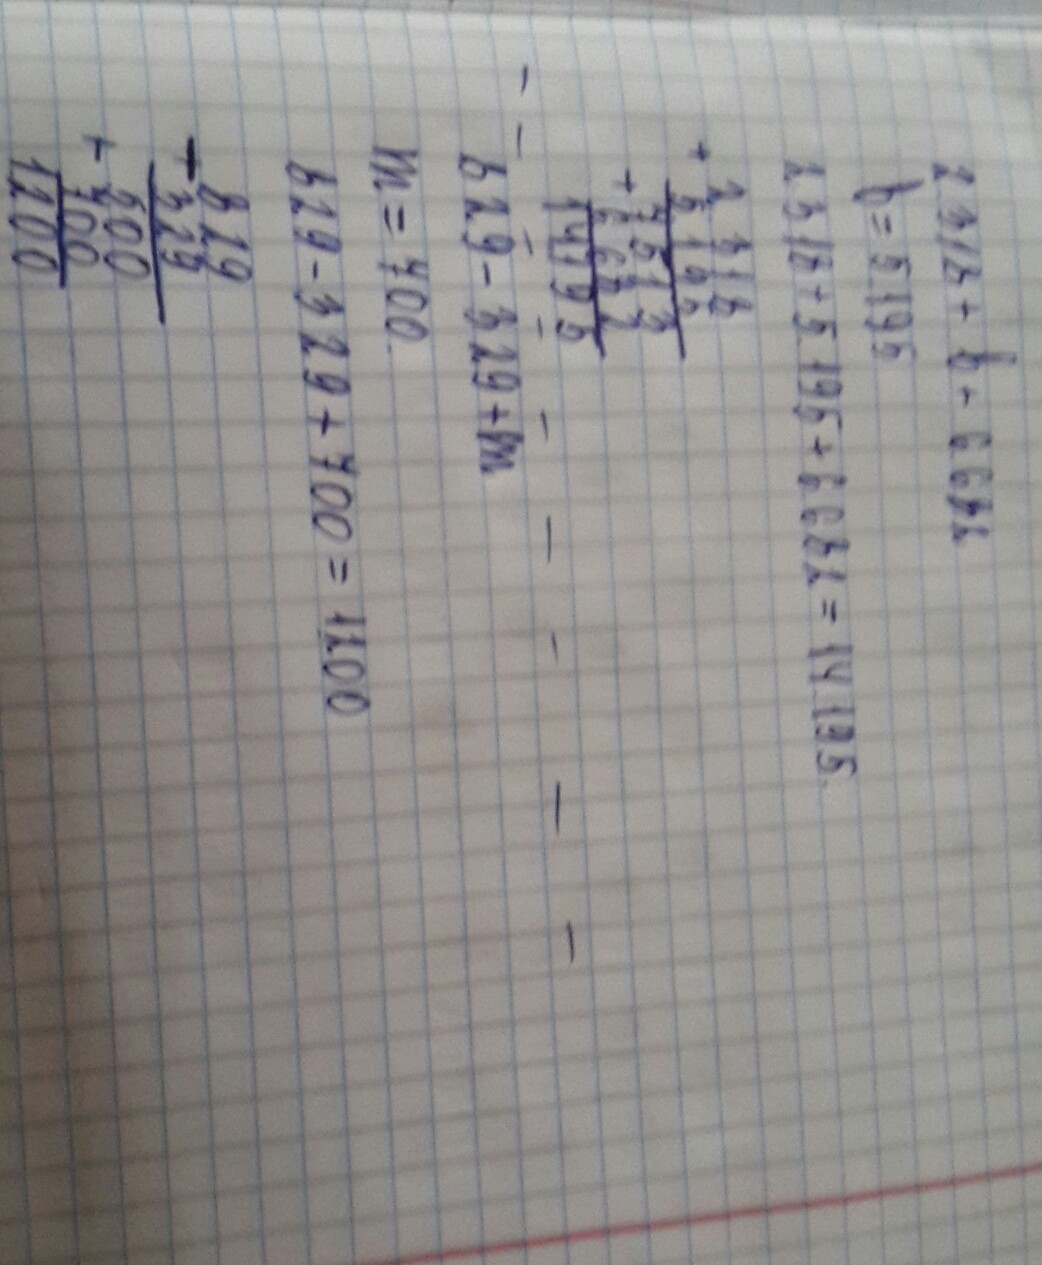 2318 + b + 6682
b = 5195
2318 + 5195 + 6682 = 14195
+ 2318
5195
7513
+ 6682
14195
829 - 329 + m
m = 700
829 - 329 + 700 = 1200
- 829
329
500
+ 700
1200